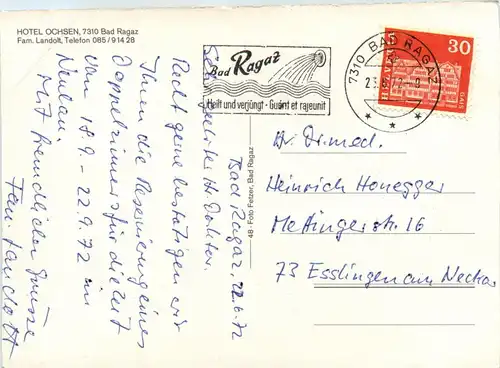 HOTEL OCHSEN, 7310 Bad Ragaz
Fam. Landolt, Telefon 085/9 14 28
Bad Ragaz
Heilt und verjüngt - Guérit et rajeunit
7310 BAD RAGAZ
HELVETIA
30
48 - Foto Fetzer, Bad Ragaz
Bad Ragaz, 22.6.72
Sehr geehrter Hr. Doktor.
Recht gerne bestätigen wir
Ihnen die Reservierung eines
Doppelzimmers für die Zeit
vom 18.9. - 22.9.72 im
Neubau.
Mit freundlicher Grüsse
Fam. Landolt
Hr. Dr. med.
Heinrich Honegger
Mettingerstr. 16
73 Esslingen am Neckar